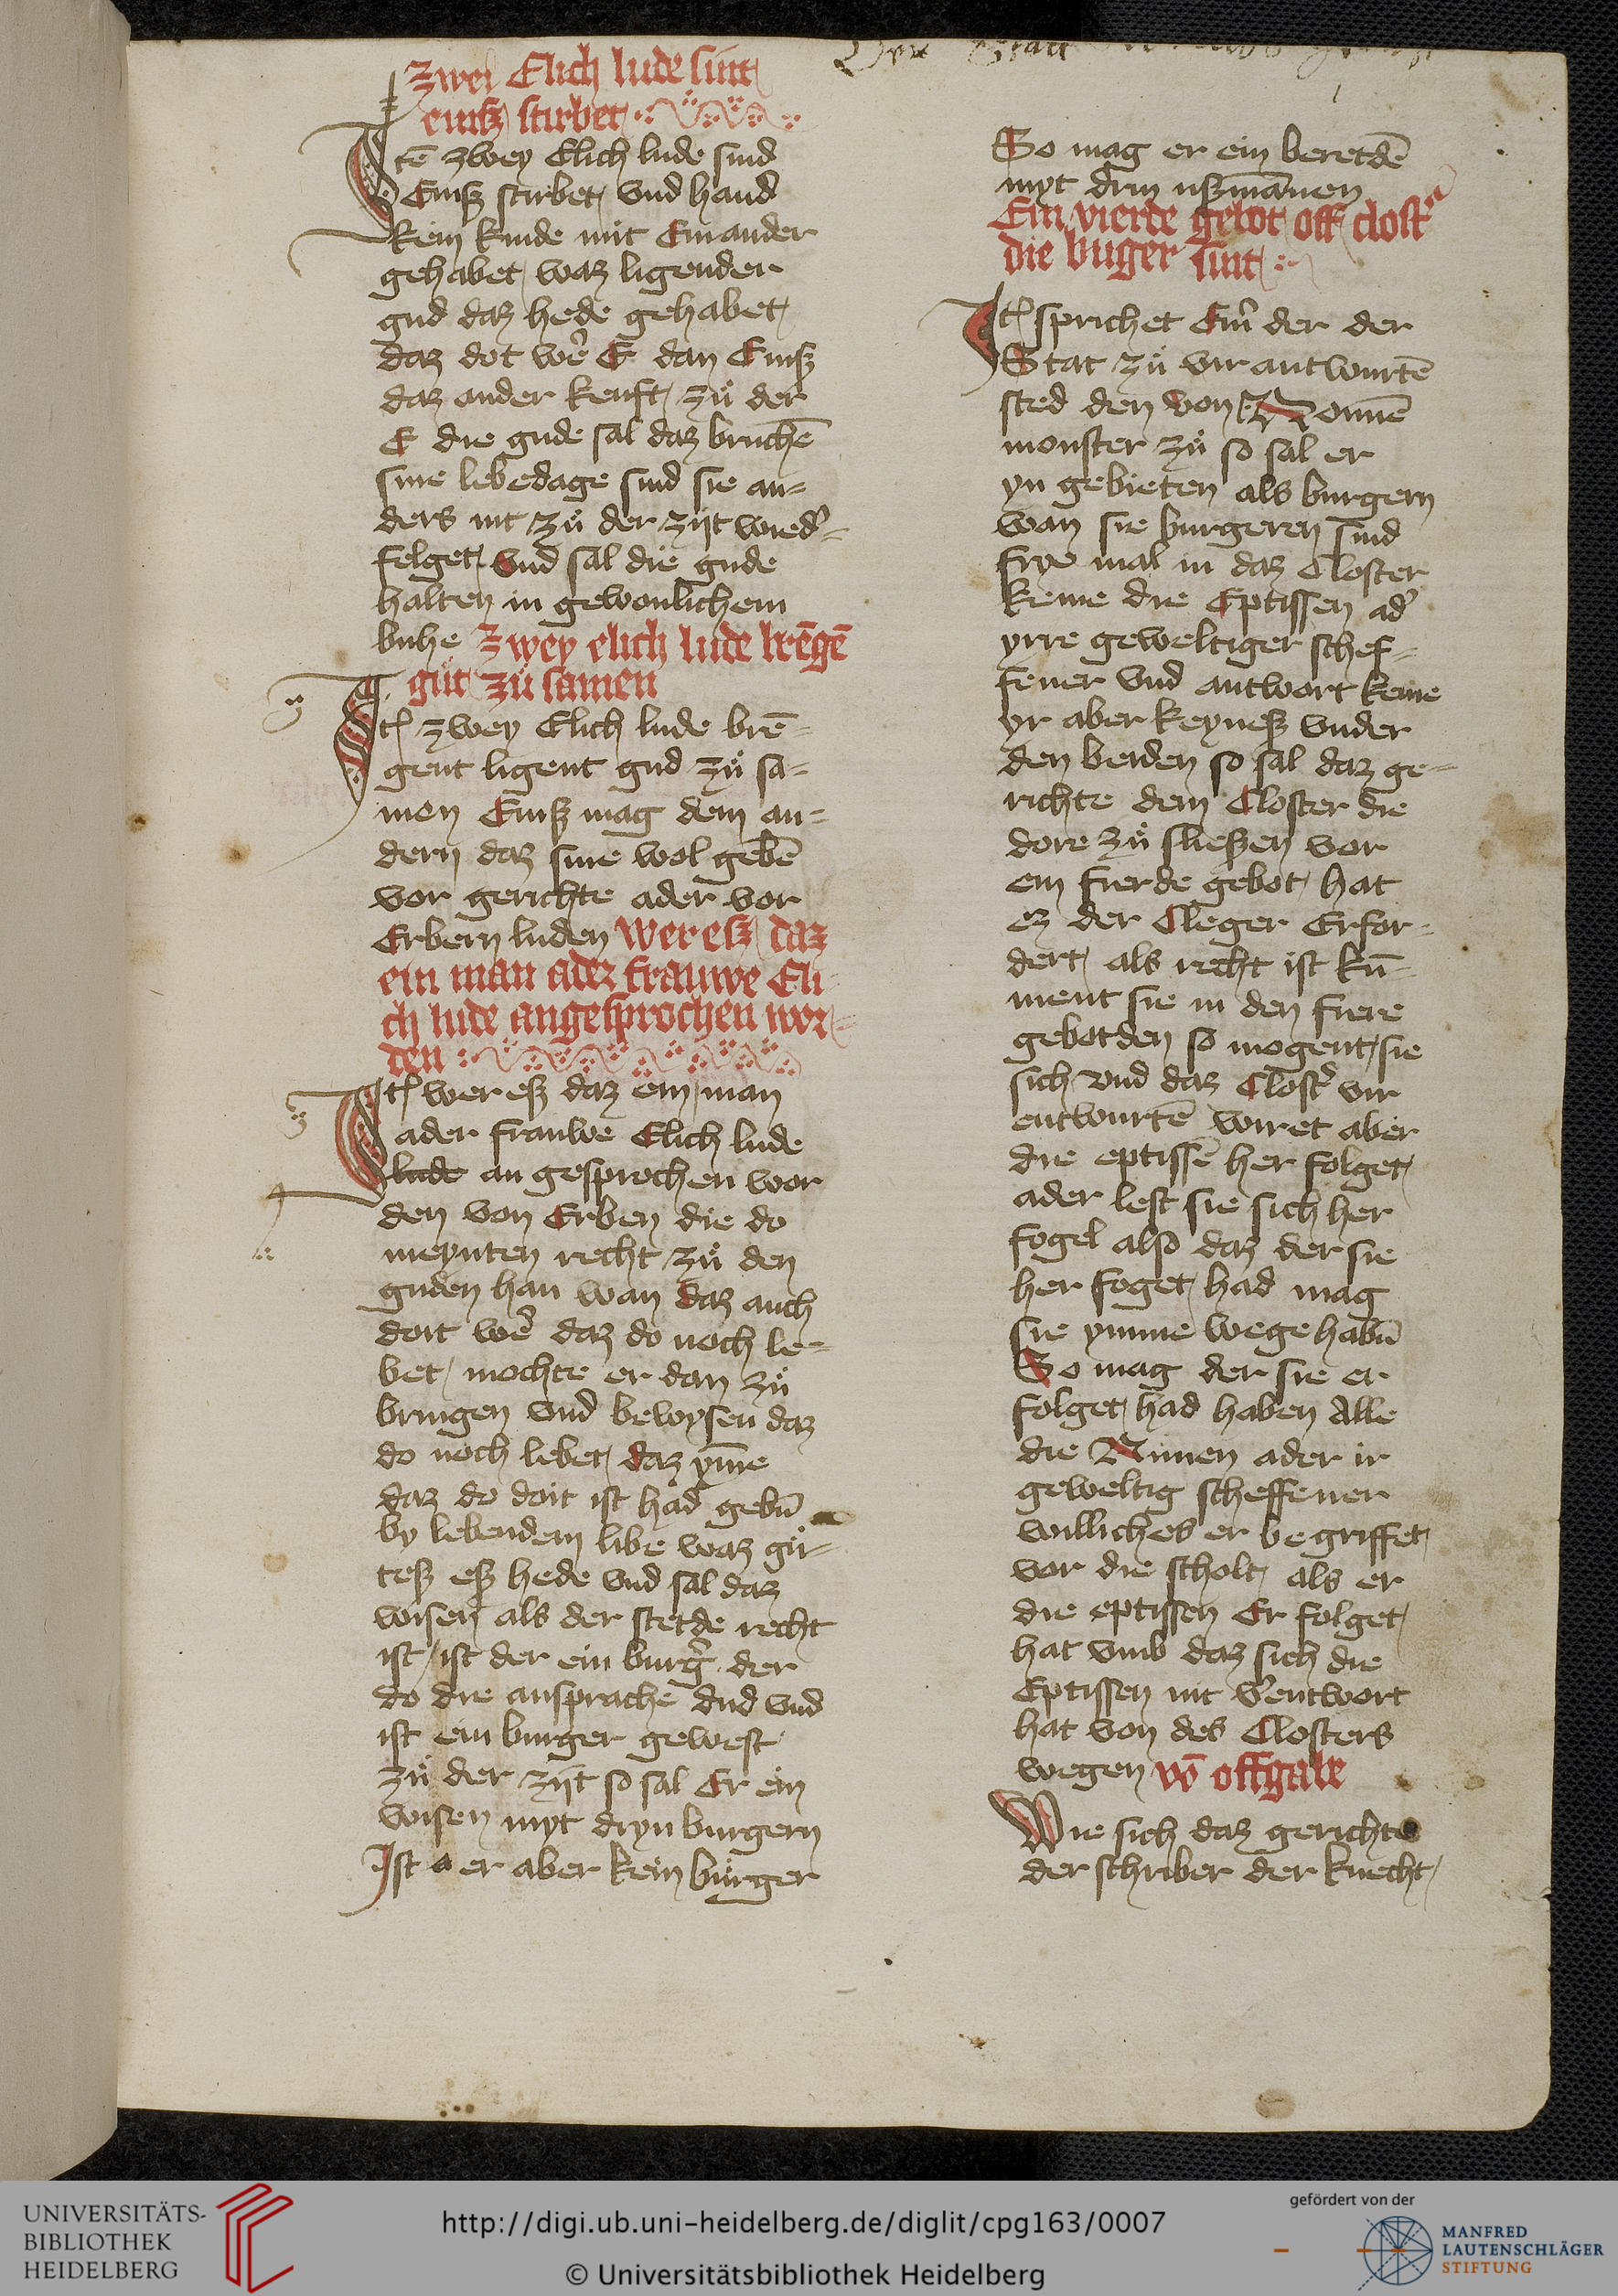 zwei Elich lude sint
einß stirbet
Itē zwey Elich lude sind
Einß stirbet vnd hand
kein kinde mit Einander
gehabet waz ligender
gud daz hede gehabet
daz dot wer̉ E dan Einß
daz ander keuft zů der
E die gude sal daz bruchē
sine lebedage sind sie an-
ders nit zů der zijt wied̉-
felget vnd sal die gude
halten in gewonlichem
buhe zwey elich lude brēgē
gůt zů samen
It zwey Elich lude brē-
gent ligent gud zů sa-
men Einß mag dem an-
dern daz sine wol gebē
vor gerichte ader vor
Erbern luden wer eß daz
ein man ader frauwe Eli
ch lude angesprochen wor-
den
It wer eß daz ein man
ader frauwe Elich lude
lude an gesprochen wor
den von Erben die do
meynten recht zů den
guden han wan daz auch
doit wer̉ daz do noch le-
bet mochte er dan zů
bringen vnd bewysen daz
do noch lebet daz ym̄e
daz do doit ist had gebn̄
by lebendem libe waz gů-
teß eß hede vnd sal daz
wisen als der stetde recht
ist ist der ein burg̉ der
do die ansprache dud vnd
ist ein burger gewest
zů der zijt so sal Er ein
wisen myt dryn burgern
Ist er aber kein burger
So mag er ein beretdē
myt drin ußmānen
Ein vierde gebot off clost̉
die buger sint
It sprichet Ein̉ der der
Stat zů vir antwurtē
sted den von Nonnē
monster zů so sal er
yn gebieten als burgern
wan sie burgeren sind
frye mal in daz Closter
keme die Eptissen ad̉
yrre geweltiger schef-
fener vnd antwort keme
yr aber keyneß vnder
den beiden so sal daz ge-
richte dem Closter die
dore zů sließen vor
ein fierde gebot hat
ez der Cleger Erfor-
dert als recht ist kū-
ment sie in den fiere
gebotden so mogent sie
sich vnd daz Clost̉ vir
entwurtē wiret aber
die eptissē her folget
ader lest sie sich her
fogel also daz der sie
her foget had mag
sie ymme wege habn̄
So mag der sie er
folget had haben Alle
die Nünen ader ir
geweltig scheffener
willicheß er begriffet
vor die scholt als er
die eptissen Er folget
hat vmb daz sich die
Eptissen nit v̉entwort
hat von des Closters
wegen vō offgabe
Wie sich daz gerichte
der schriber der knecht
UNIVERSITÄTS-
BIBLIOTHEK
HEIDELBERG
http://digi.ub.uni-heidelberg.de/diglit/cpg163/0007
© Universitätsbibliothek Heidelberg
gefördert von der
MANFRED
LAUTENSCHLÄGER
STIFTUNG